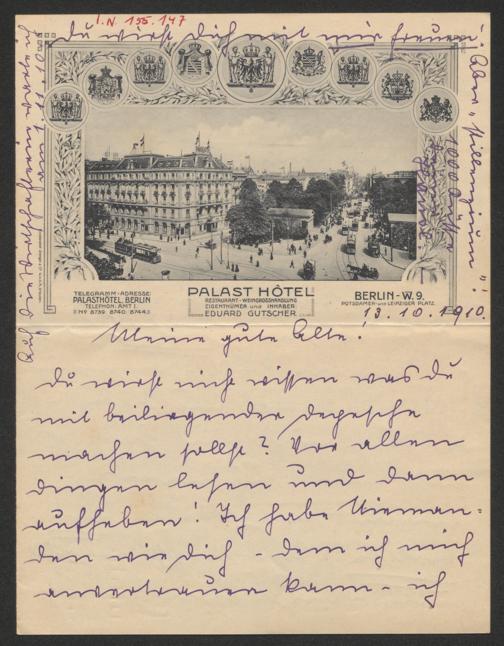 I.N. 155.147
du wirst dich mit mir freuen!
Aber "Stillenzium"!
1000 Küsse
TELEGRAMM-ADRESSE:
PALASTHÔTEL, BERLIN
TELEPHON: AMT I.
No 8739. 8740. 8744.
PALAST HÔTEL
RESTAURANT-WEINGROSSHANDLUNG
EIGENTHÜMER UND INHABER
EDUARD GUTSCHER
BERLIN-W.9,
POTSDAMER- UND LEIPZIGER PLATZ.
13.10.1910.
Meine gute Alte.
du wirst nicht wissen was du
mit beiliegender depesche
machen sollst? Vor allen
dingen lesen und dann
aufheben! Ich habe Nieman-
den wie dich - dem ich mich
anvertrauen kann - ich